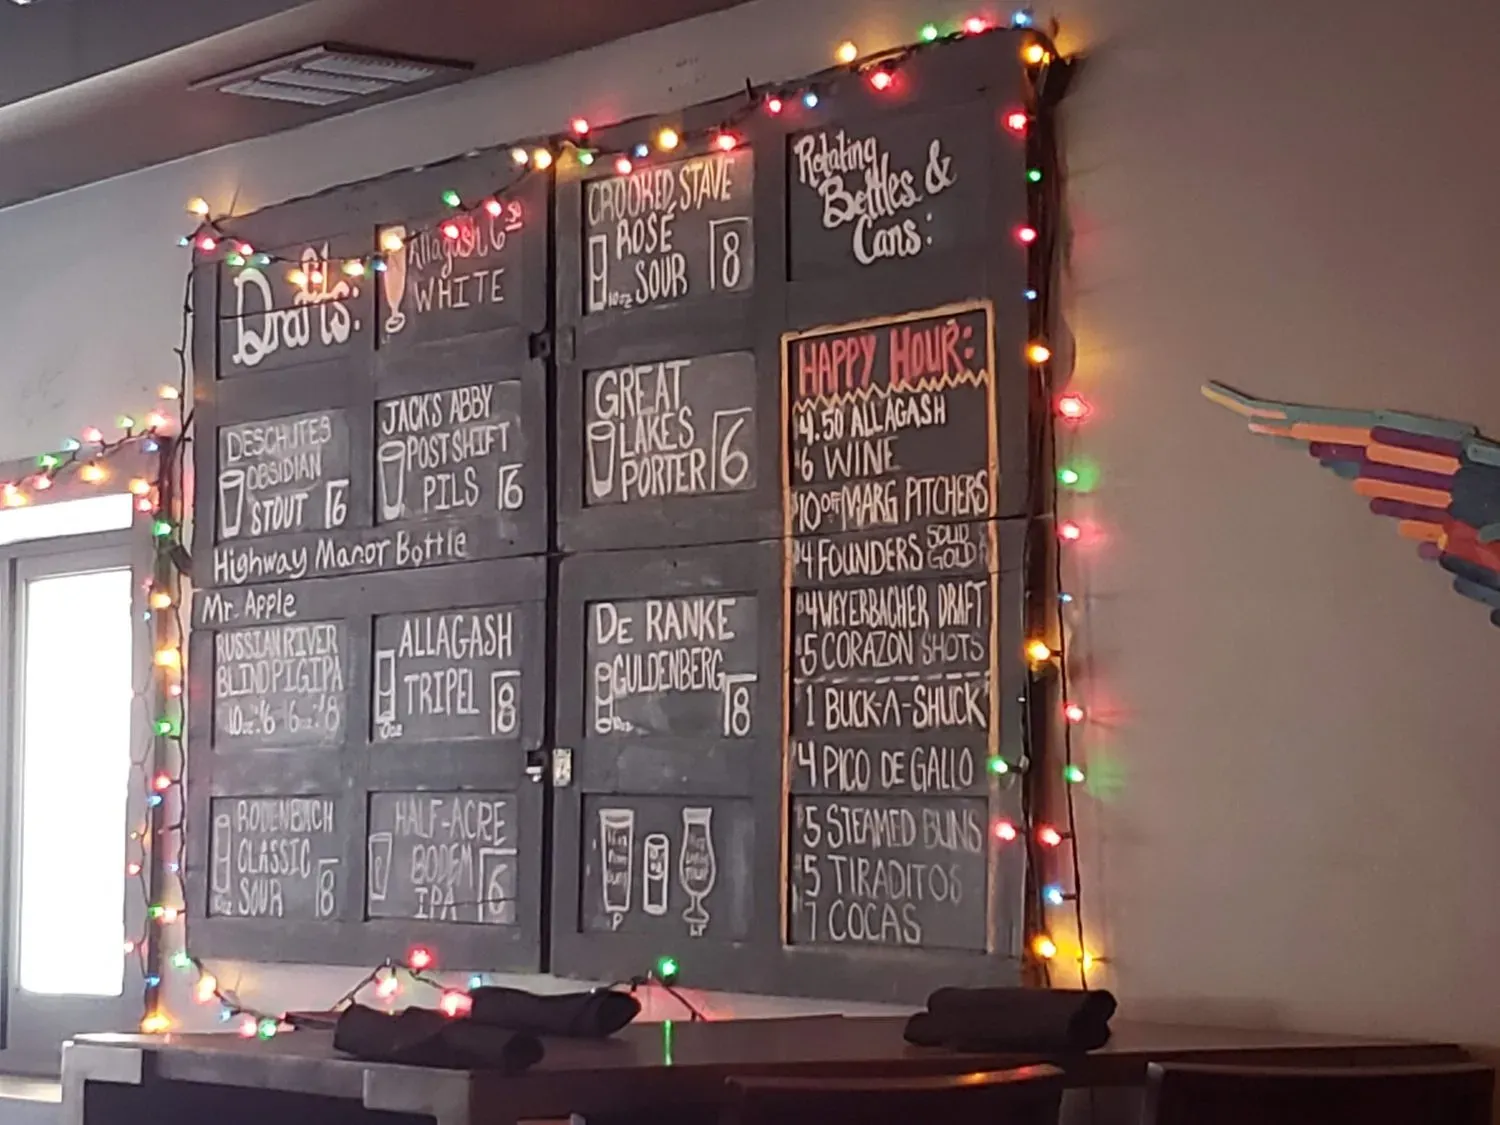 Drafts:
Allagash 6.50
WHITE
DESCHUTES
OBSIDIAN
STOUT 6
JACKS ABBY
POST SHIFT
PILS 6
Highway Manor Bottle
Mr. Apple
RUSSIAN RIVER
BLIND PIG IPA
10oz:6 16oz:8
ALLAGASH
TRIPEL 8
RODENBACH
CLASSIC
SOUR 8
HALF-ACRE
BODEM
IPA 6
CROOKED STAVE
ROSÉ
SOUR 8
10oz
GREAT
LAKES
PORTER 6
DE RANKE
GULDENBERG
8
Rotating
Bottles &
Cans:
HAPPY HOUR:
4.50 ALLAGASH
$6 WINE
$10 OFF MARG PITCHERS
$4 FOUNDERS SOLID GOLD
$4 WEYERBACHER DRAFT
$5 CORAZON SHOTS
1 BUCK-A-SHUCK
4 PICO DE GALLO
$5 STEAMED BUNS
$5 TIRADITOS
7 COCAS